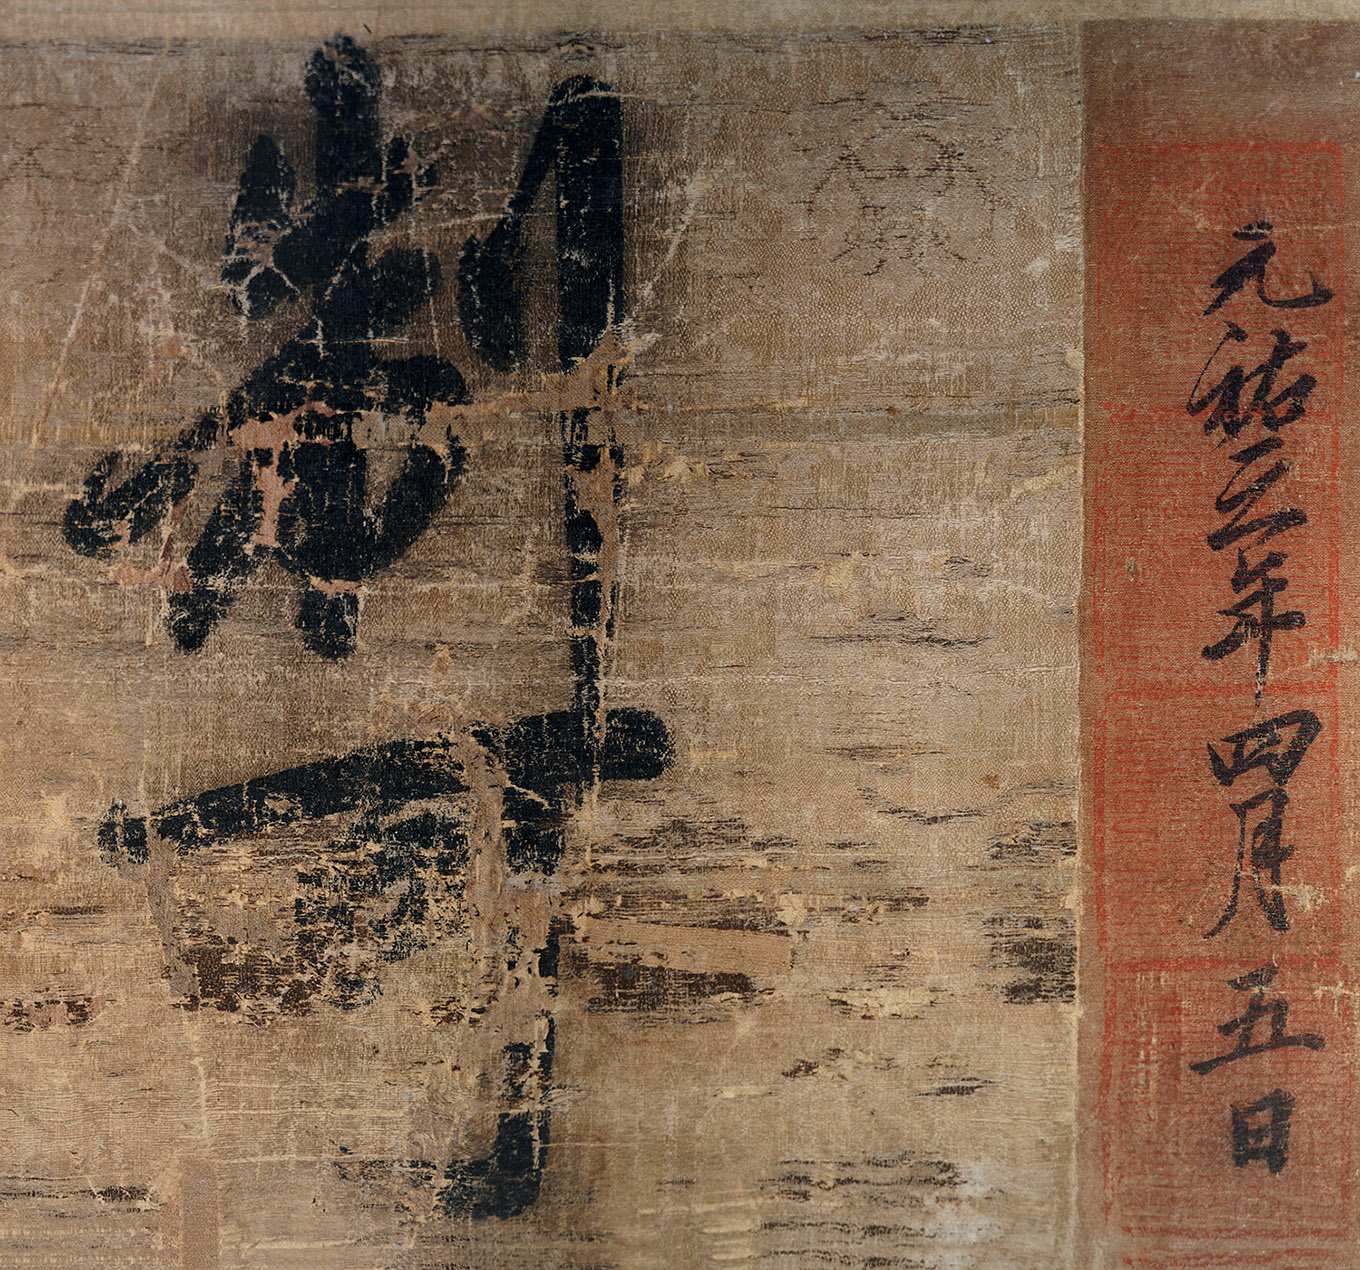 元祐三年四月五日
制可